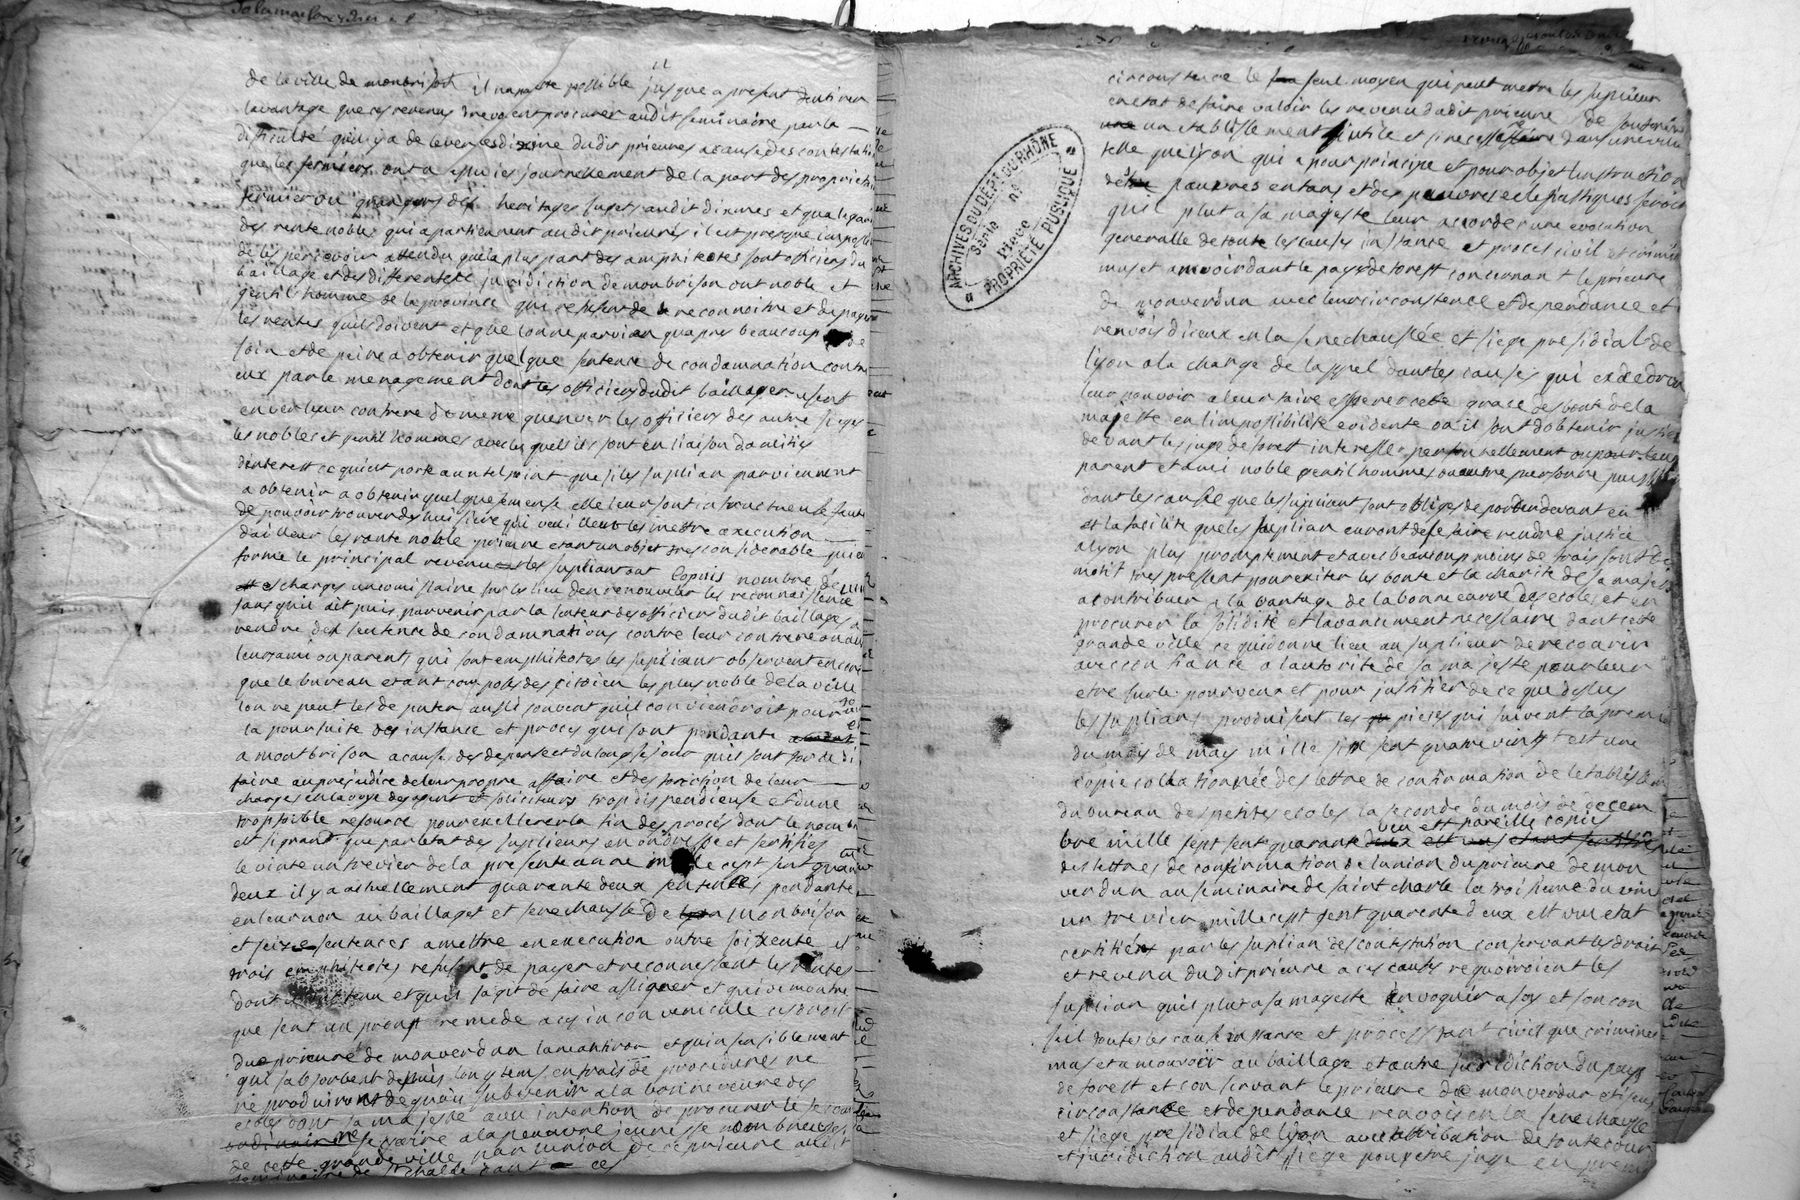 de la ville de monbrison il na pas ete possible jusque a present dentirer
lavantage que ces revenus devoient procurer audit seminaire par la
difficulté quil y a de lever les dixme dudit prieures a cause des contestation
que les fermiers ont a essuies journellement de la part des proprietaire
fermier ou grangers des heritages sujets audit dixmes et qua legard
des rente nobles qui apartienent au dit prieurés il est presque imposible
de les percevoir attendu que la plus part des amphiteotes sont officiers du
baillage et des differentes juridiction de monbrison ont noble et
gentil homme de la province qui refusent de reconnoitre et de payer
les rentes quils doivent et que lon ne parvien quapres beaucoup de
soin et de peine a obtenir quelque sentence de condamnation contre
eux par le menagement dont les officiers dudit baillager usent
enver leur confrere de meme quenver les officiers des autre sieges
les nobles et gentil hommes avec les quels ils sont en liaison damities
dinterest ce qui est porté a un tel point que si les suplian parviennent
a obtenir a obtenir quelque sentense elle leur sont infructueuse faute
de pouvoir trouver des huissiere qui veuilleut les mettre a execution
dailleur les rante noble prieure etant un objet tres considerable qui en
forme le principal revenu les supliant ont
charges un comissaire sur les lieu den renouveler les reconnaissence
sans quil ait puis parvenir par la faveur des officiers dudit baillages a
rendre des sentence de condamnations contre leur confrere ou au
leur ami ou parent qui sont emphiteotes les supliant observent encore
que le bureau etant composés des citoien les plus noble de la ville
lon ne peut les deputer aussi souvent quil conviendroit pour
la poursuite des instance et proces qui sont pendante
a montbrison a cause des depense et du long sejour quils sont
faire au prejudice de leur propre affaire et des fonction de leur
charges en la voye des agent et soliciteurs trop dispendieuse et dune
trop foible resource pour excellerer la fin des procés dont le nombre
est si grand que par letat des suplieurs en ont dresse et certifies
le vinte un frevier de la presente annee mille sept sent quarante
deux il y a actuellement quarante deux sentences pendante
en leur non au baillages et senechausse de monbrison
et seize sentences a mettre en execution outre soixente et
trois emphiteotes refusent de payer et reconnessant les rentes
dont et quil sagit de faire assigner et qui demontre
que sent un pront remede a ces inconvenient les droit
du prieuré de monverdun saneantiron et quinsensiblement
qui sabsorbent depuis longtems en frais de procedures ne
produiront de quoi subvenir a la bonne euvre des
ecoles dont sa majeste a eu intention de procurer le secour
necessaire a la peauvre jeunesse nombreuses
de cette grande ville par lunion de ce prieure audit
seminaire de st charle dont ces
circonstence le seul moyen qui peut metre les suplieur
en etat de faire valoir les revenu dudit prieure de soutenir
un etablissement si utile et si necessaire dans une ville
telle que lyon qui a pour principe et pour objet linstruction
des pauvres enfans et des pauvres eclesiastiques seroit
quil plut a sa majeste leur accorder une evocation
generalle de toute les causes instance et proces civil et crimi
mus et a mouvoir dant le pays de forest concernan t le prieure
de monverdun avec leur circonstence et dependance et
renvois diceux en la senechaussée et siege presidial de
lyon a la charge de lappel dant les causes qui excederon
leur pouvoir a leur faire esperer cette grace des bonté de la
majeste en limpossibilité evidente ou il sont dobtenir justice
devant les juge de forest interesse personnellement ou pour leur
parent et ami noble gentil hommes ou autre personne
dant les cause que les supliant sont obliges de porter devant eu
et la facilité que les suplian auront de se faire rendre justice
a lyon plus promptement et avec beaucoup moins de frais sont des
motif tres pressent pour exiter les bonté et la charité de sa majeste
a contribuer a la vantage de la bonne euvre des ecoles et en
procurer la solidité et lavancement necessaire dant cette
grande ville ce qui donne lieu au suplieur de recourir
avec confiance a lautorité de sa majesté pour leur
etre sur ce pourveux et pour justifier de ce que deslus
les suplians produisent les pieces qui suivent la premi
du mois de may mille six sent quatre vint est une
copie collationnée des lettre de confirmation de letablissem
du bureau des petites ecoles la seconde du mois de decem
bre mille sept sent quarante un est pareille copie
des lettres de confirmation de lunion du prieuré de mon
verdun au seminaire de saint charle la troisieme du vin
un frevier mille sept sent quarente deux est un etat
certifiés par les suplian des contestation conservant les droit
et revenu dudit prieuré a ces causes requoiroient les
suplian quil plut a sa mageste envoquir a soy et son con
seil toutes les cause instance et process tant civil que crimine
mus et a mouvoir au baillage et autre jurediction du pays
de forest et conservant le prieuré de monverdun et ses
circonstance et dependance renvois en la senechaussé
et siege presidial de lyon avec attribution de toute cour
et juridiction audit siege pour etre juge en premi
ARCHIVES DU DEPT DU RHÔNE
Série
n°
Pièce
PROPRIÉTÉ PUBLIQUE